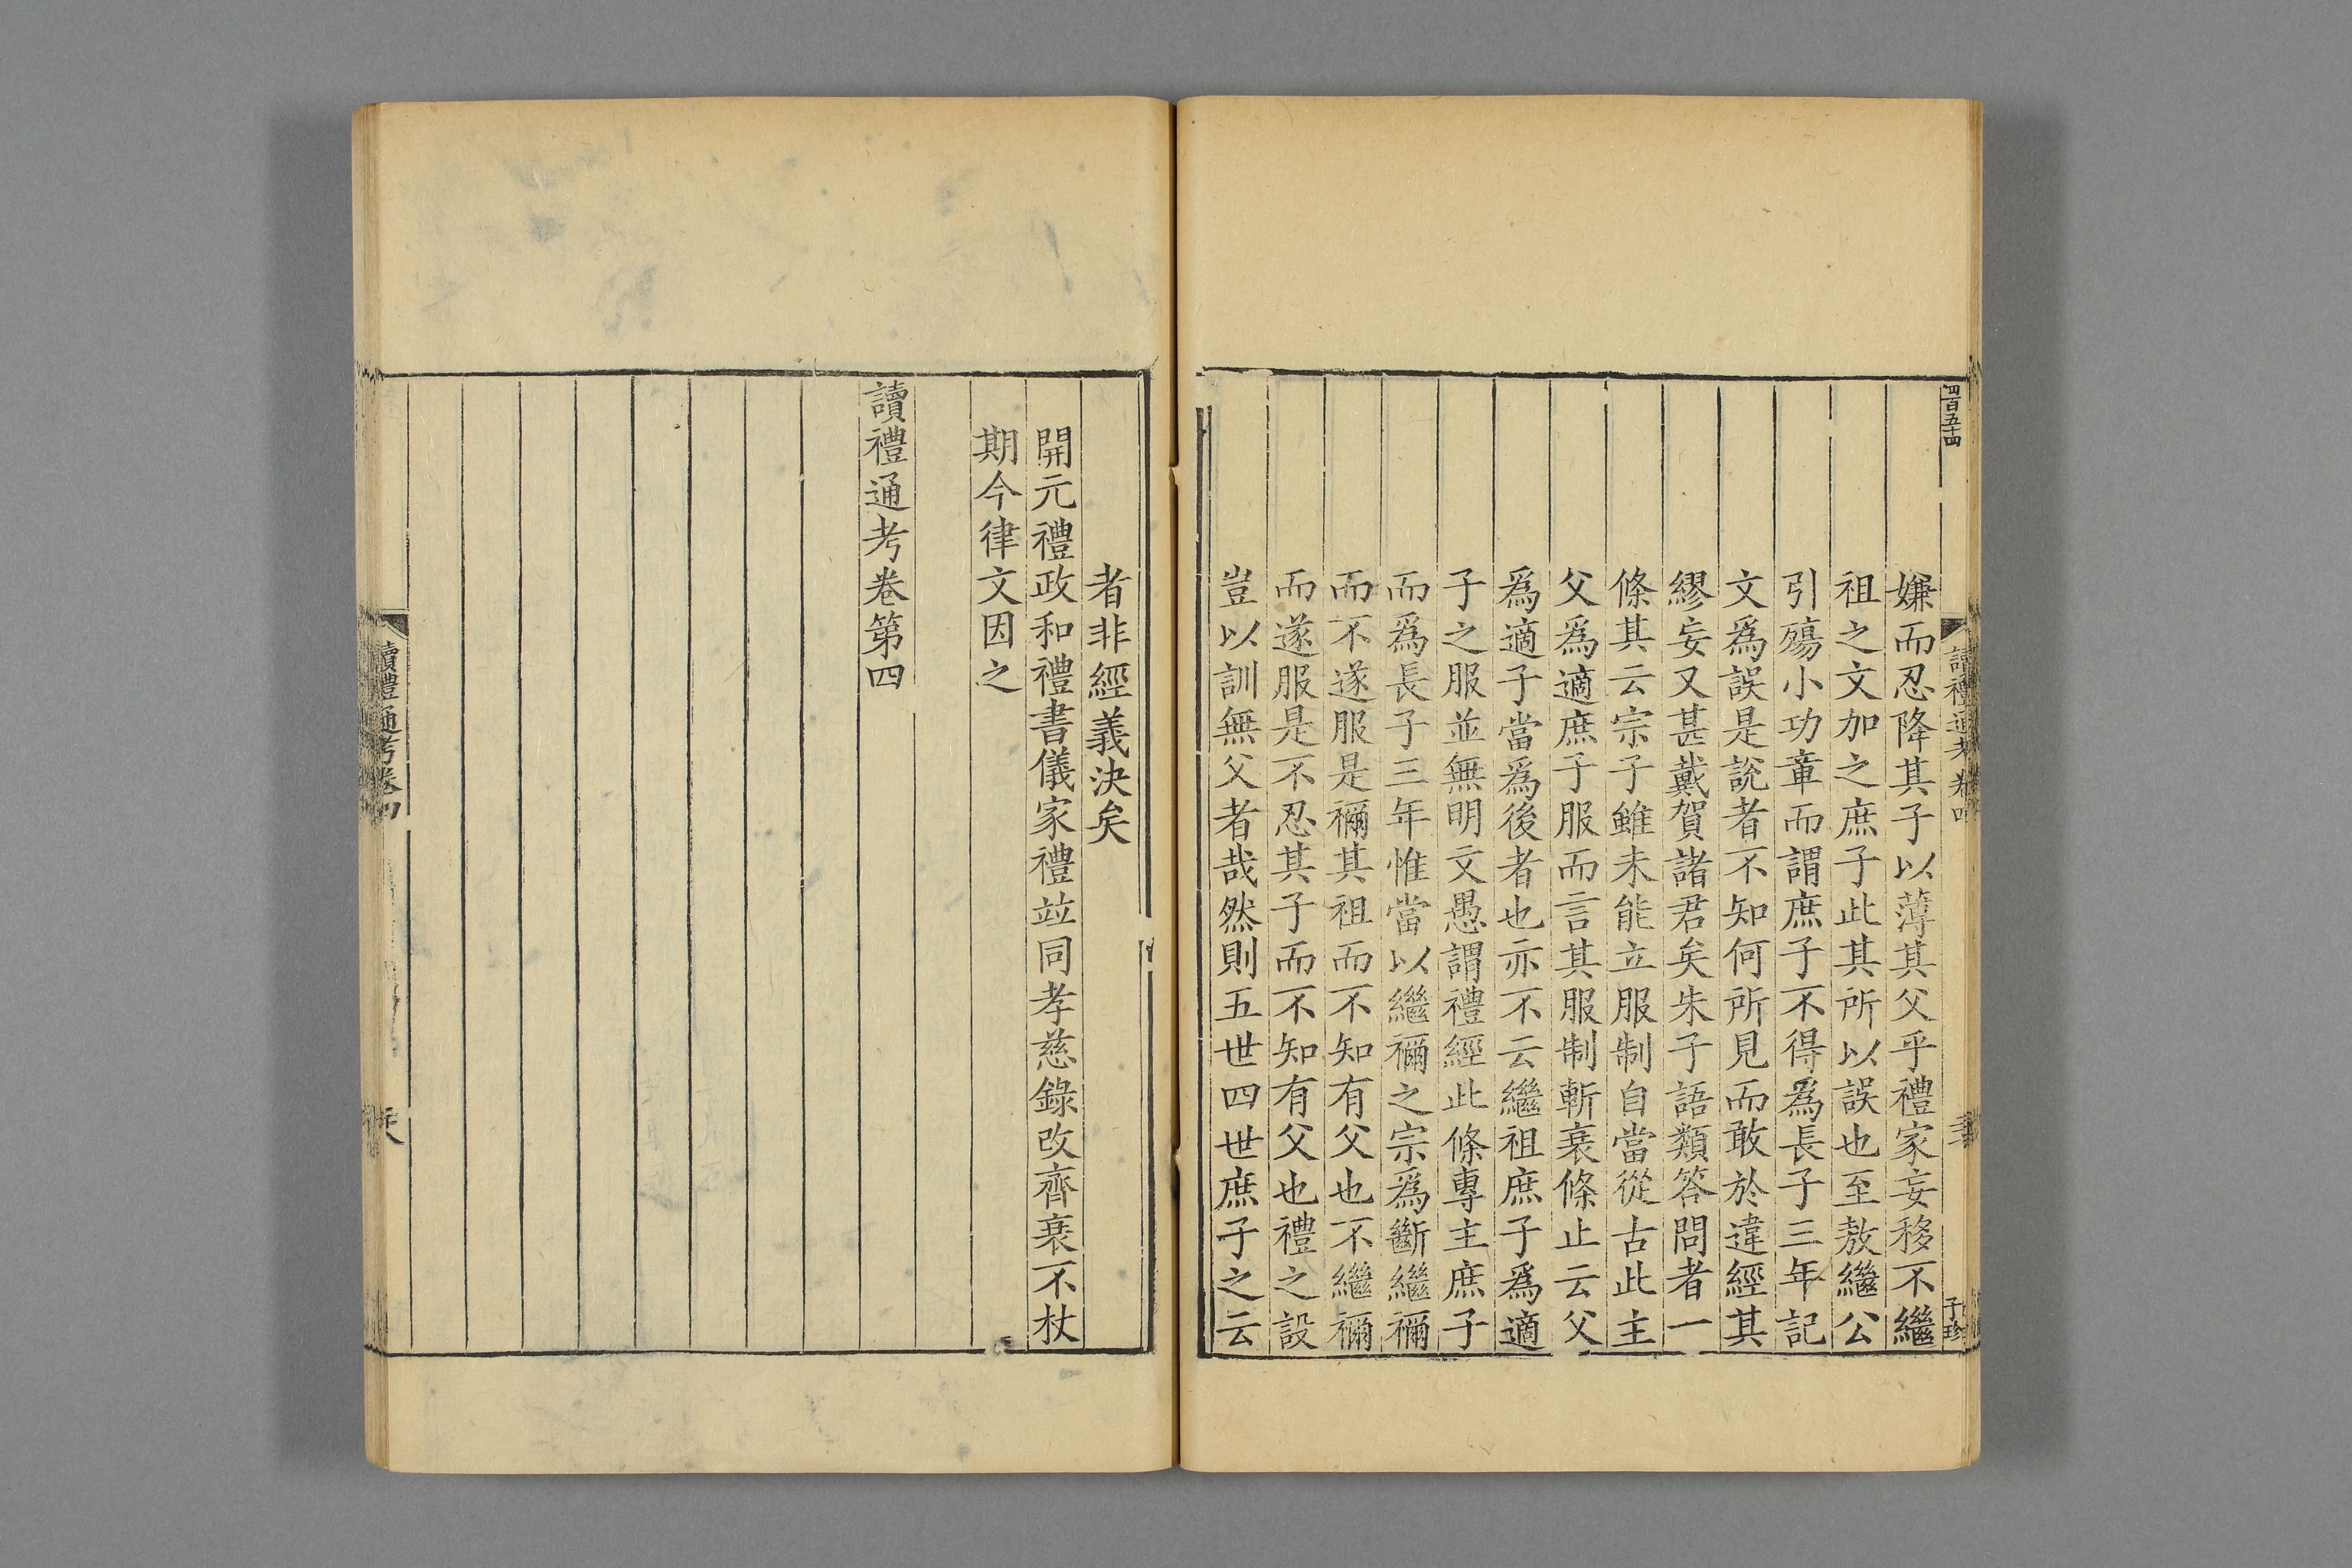 四百五十四
讀禮通考卷四
子珍
嫌而忍降其子以薄其父乎禮家妄移不繼
祖之文加之庶子此其所以誤也至敖繼公
引殤小功章而謂庶子不得爲長子三年記
文爲誤是說者不知何所見而敢於違經其
繆妄又甚戴賀諸君矣朱子語類答問者一
條其云宗子雖未能立服制自當從古此主
父爲適庶子服而言其服制斬衰條止云父
爲適子當爲後者也亦不云繼祖庶子爲適
子之服並無明文愚謂禮經此條專主庶子
而爲長子三年惟當以繼禰之宗爲斷繼禰
而不遂服是禰其祖而不知有父也不繼禰
而遂服是不忍其子而不知有父也禮之設
豈以訓無父者哉然則五世四世庶子之云
者非經義決矣
開元禮政和禮書儀家禮竝同孝慈錄改齊衰不杖
期今律文因之
讀禮通考卷第四
讀禮通考卷四